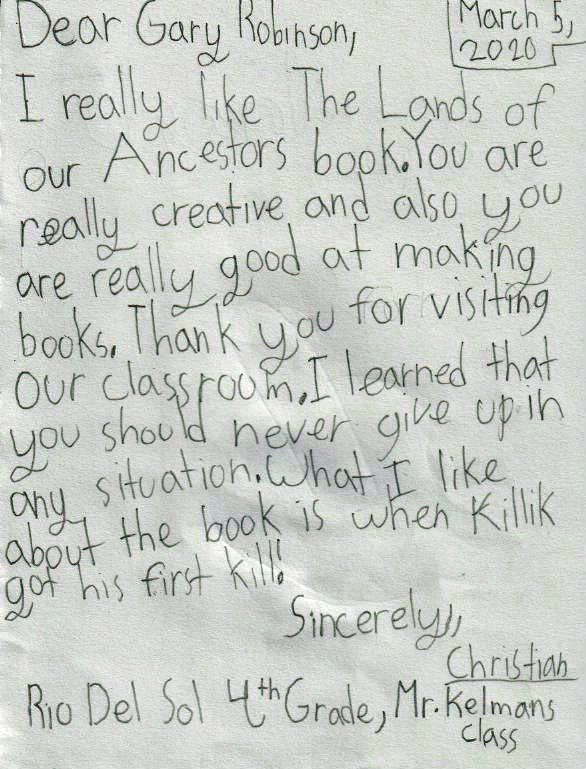 Dear Gary Robinson,
March 5,
2020
I really like The Lands of
our Ancestors book. You are
really creative and also you
are really good at making
books. Thank you for visiting
our classroom. I learned that
you should never give up in
any situation. What I like
about the book is when Killik
got his first kill!
Sincerely,,
Christian
Rio Del Sol 4th Grade, Mr. Kelmans
class